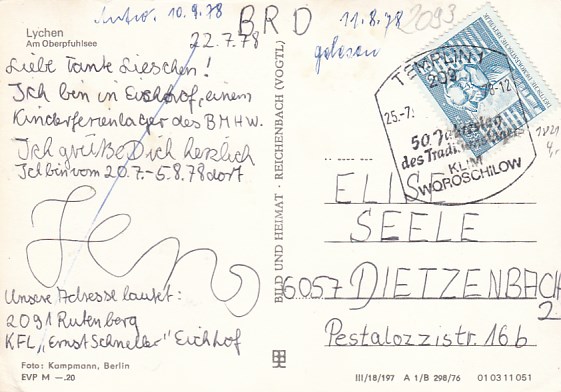 Antw. 10.9.78
BRD
11.8.78
gelesen
2093
Lychen
Am Oberpfuhlsee
22.7.78
Liebe Tante Lieschen!
Ich bin in Eichhof, einem
Kinderferienlager des BMHW.
Ich grüße Dich herzlich
Ich bin vom 20.7.-5.8.78 dort
Jens
Unsere Adresse lautet:
2091 Rutenberg
KFL "Ernst Schneller" Eichhof
Foto: Kampmann, Berlin
EVP M —.20
BILD UND HEIMAT · REICHENBACH (VOGTL)
TEMPLIN 1
209
25.-7. 78-12
50. Jahrestag
des Traditionslagers
KLIM
WOROSCHILOW
ELISE
SEELE
6057 DIETZENBACH
2
Pestalozzistr. 16b
III/18/197 A 1/B 298/76 01 03 11 051